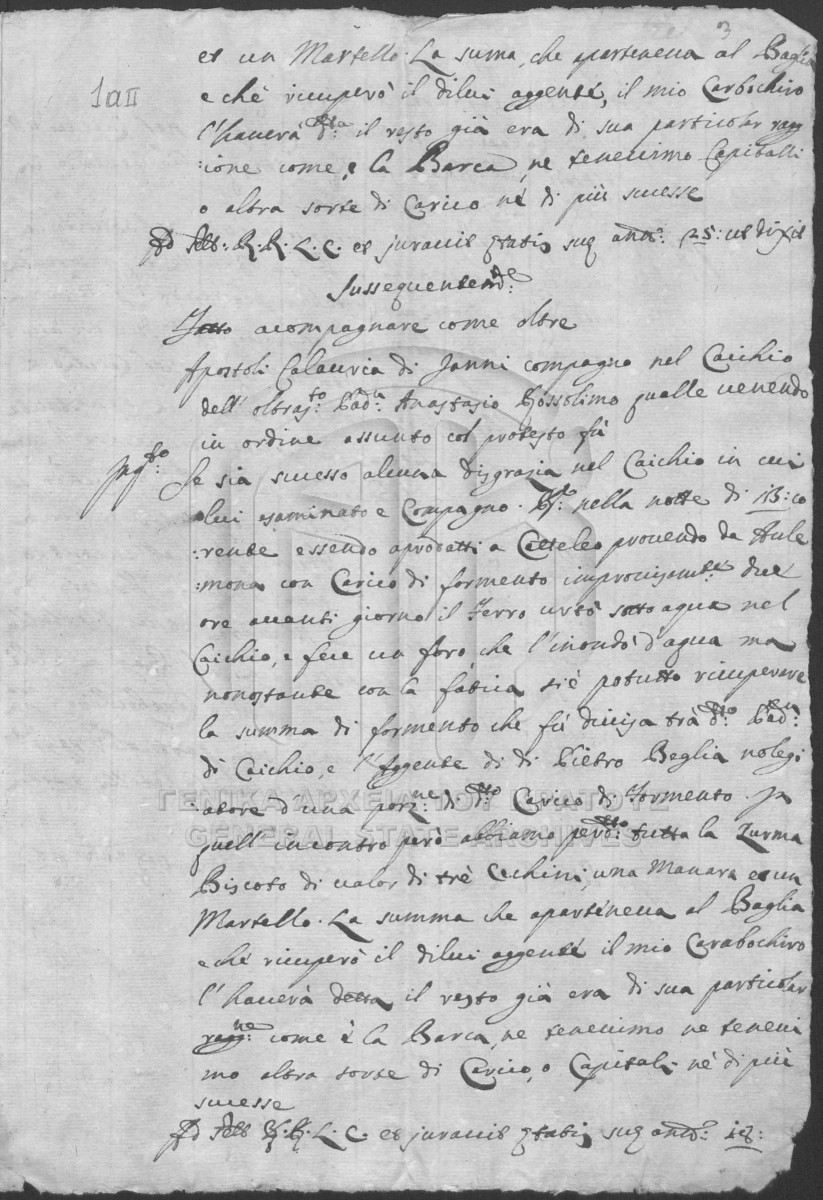 3
1aII
et un Martello. La suma, che aparteneva al Baglia
e che ricuperò il dilui aggente, il mio Carbochiro
l'haverà dtta il resto già era di sua particolar rag
:ione come, e la Barca, ne tenevimo Capitalli
o altra sorte di Carico nè di più sucesse
Ad R. R. L. C. et juravit ętatis suę annor: 25: ut dixit
Sussequentemte:
Fatto acompagnare come oltre
Apostoli Calavria di Janni compagno nel Caichio
dell'oltrasto: Padn: Anastasio qualle venendo
in ordine assunto col protesto fù
Se sia sucesso alcuna disgrazia nel Caichio in cui
lui esaminato e Compagno. Rto: nella notte di 13: co
:rente essendo aprodatti a provendo da Aule
:mona con Carico di formento improvisamte: due
ore avanti giorno il Ferro urtò sotto aqua nel
Caichio, e fece un foro che l'inondò d'aqua ma
nonostante con la fatica si è potutto ricuperare
la summa di formento che fù divisa trà dtto Padn:
di Caichio, e l'Aggente di di Pietro Beglia nolegi
:atore d'una porzne: di dtto Carico di Formento. In
quell'incontro però abbiamo perdto: tutta la Zurma
Biscoto di valor di trè Cechini, una Manara et un
Martello. La summa che aparteneva al Baglia
e chè ricuperò il dilui aggente il mio Carabochiro
l'haverà detta il resto già era di sua particolar
ragne: come è la Barca, ne tenevimo ne tenevi
mo altra sorte di Carico, o Capital. nè di più
sucesse
Ad R. R. L. C. et juravit ętatis suę annor: 18:
ΓΕΝΙΚΑ ΑΡΧΕΙΑ ΤΟΥ ΚΡΑΤΟΥΣ
GENERAL STATE ARCHIVES